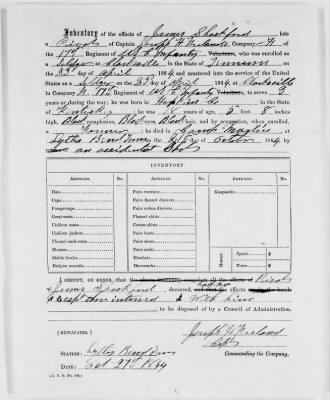 Inventory of the effects of James Shackford late
a Private of Captain Joseph H Wieland's Company H
17th Regiment of U.S.C. Infantry Volunteers, who was enrolled as
Soldier at Clarksville in the State of
on the 23d day of April 1864 and mustered into the service of the United
States as a on the 23d day of April 1864, at Clarksville
in Company H, 17th Regiment of U.S.C. Infantry Volunteers, to serve 3
years or during the war; he was born in Hopkins Co in the State
of Kentucky; he was years of age, 5 feet 8 inches
high, complexion, eyes, hair, and by occupation, when enrolled,
a Farmer; he died in Camp
Lytles Bend Tenn, the day of October 1864, by
an accidental Shot
INVENTORY.
ARTICLES. No. ARTICLES. No. ARTICLES. No.
Hats, Pairs trowsers, Knapsacks,
Caps, Pairs flannel drawers,
Forage-caps, Pairs cotton drawers,
Great coats, Flannel shirts,
Uniform coats, Cotton shirts,
Uniform jackets, Pairs boots,
Flannel sack coats, Pairs shoes,
Blouses, Pairs socks,
Stable frocks, Blankets, MONEY Specie, $
Fatigue overalls, Haversacks, Notes, $
I CERTIFY, ON HONOR, that the above inventory comprises all the effects of Private
James Shackford, deceased, had no effects
Except those interred with him
to be disposed of by a Council of Administration.
(DUPLICATES.)
Joseph H Wieland
Capt
Commanding the Company.
STATION: Lytles Bend Tenn
DATE: Oct 27th 1864